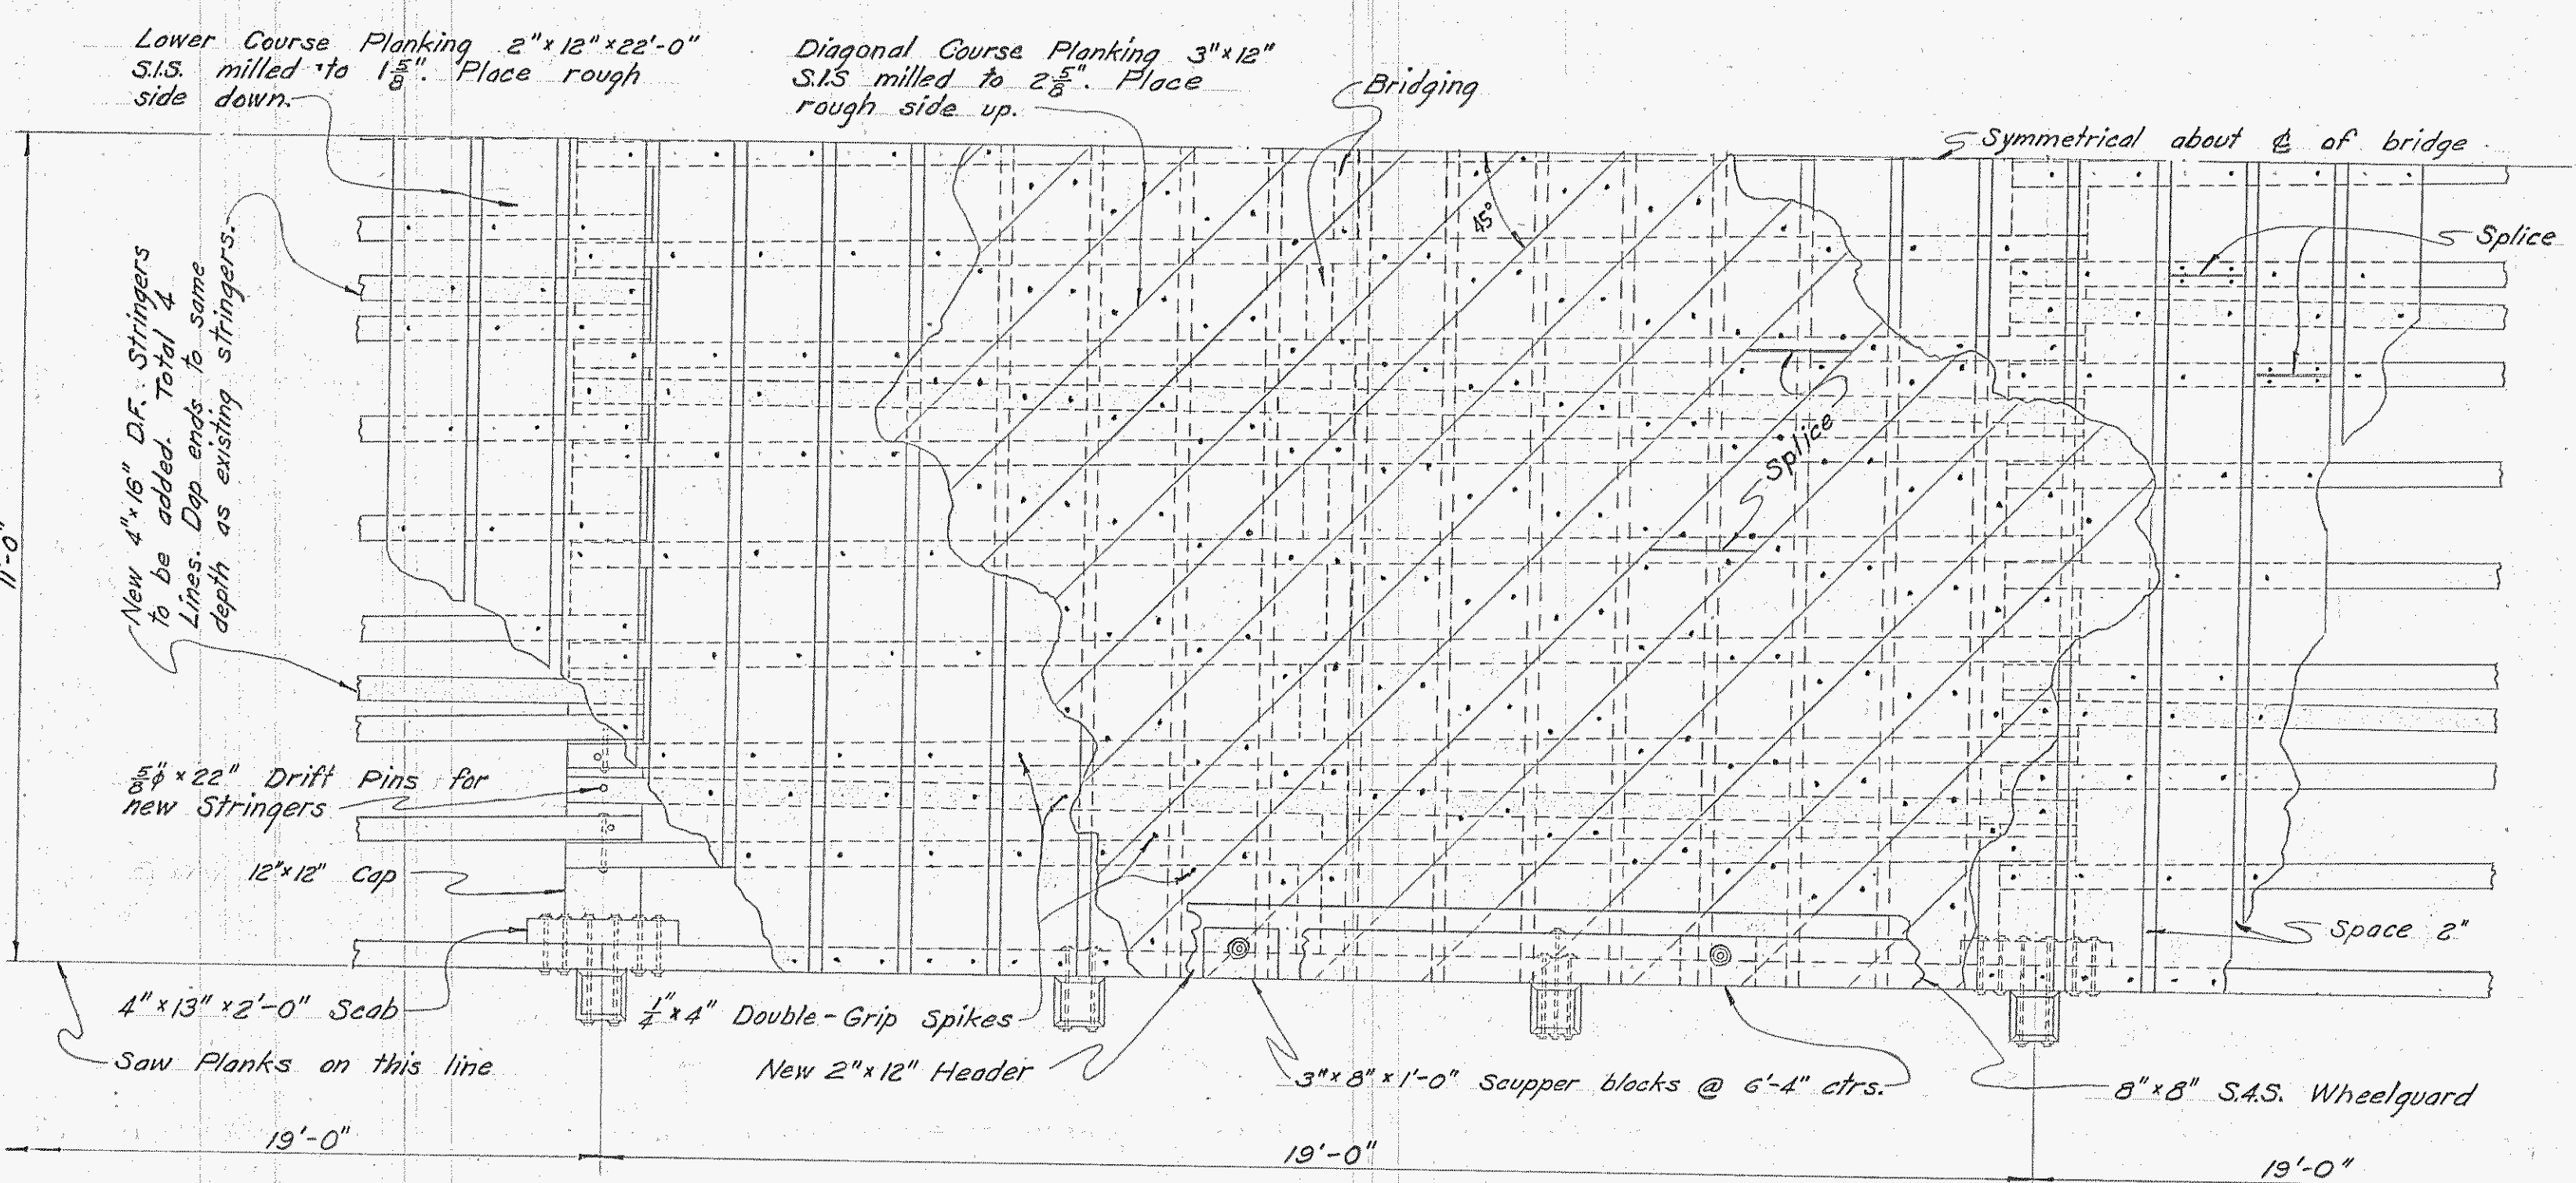 Lower Course Planking 2"×12"×22'-0"
S.I.S. milled to 1 5/8". Place rough
side down.
Diagonal Course Planking 3"×12"
S.I.S milled to 2 5/8". Place
rough side up.
Bridging
Symmetrical about ℄ of bridge
Splice
45°
New 4"×16" D.F. Stringers
to be added. Total 4
Lines. Dap ends to same
depth as existing stringers.
11'-0"
Splice
5/8"ϕ×22" Drift Pins for
new Stringers
12"×12" Cap
Space 2"
4"×13"×2'-0" Scab
1/4"×4" Double-Grip Spikes
Saw Planks on this line
New 2"×12" Header
3"×8"×1'-0" Scupper blocks @ 6'-4" ctrs.
8"×8" S.4.S. Wheelguard
19'-0"
19'-0"
19'-0"